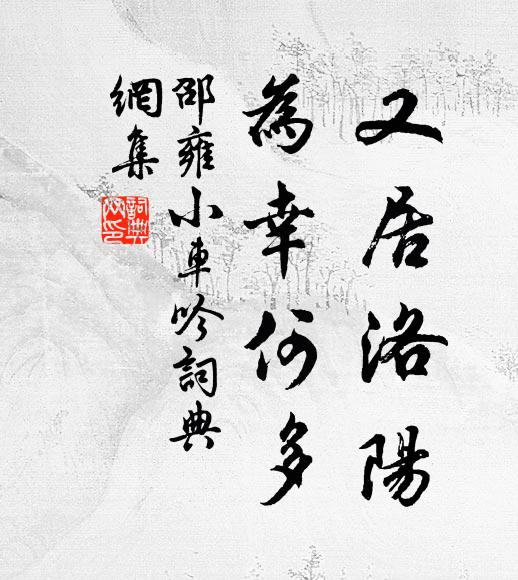 又居洛陽
為幸何多
邵雍小車吟詞典
網集
詞典網印